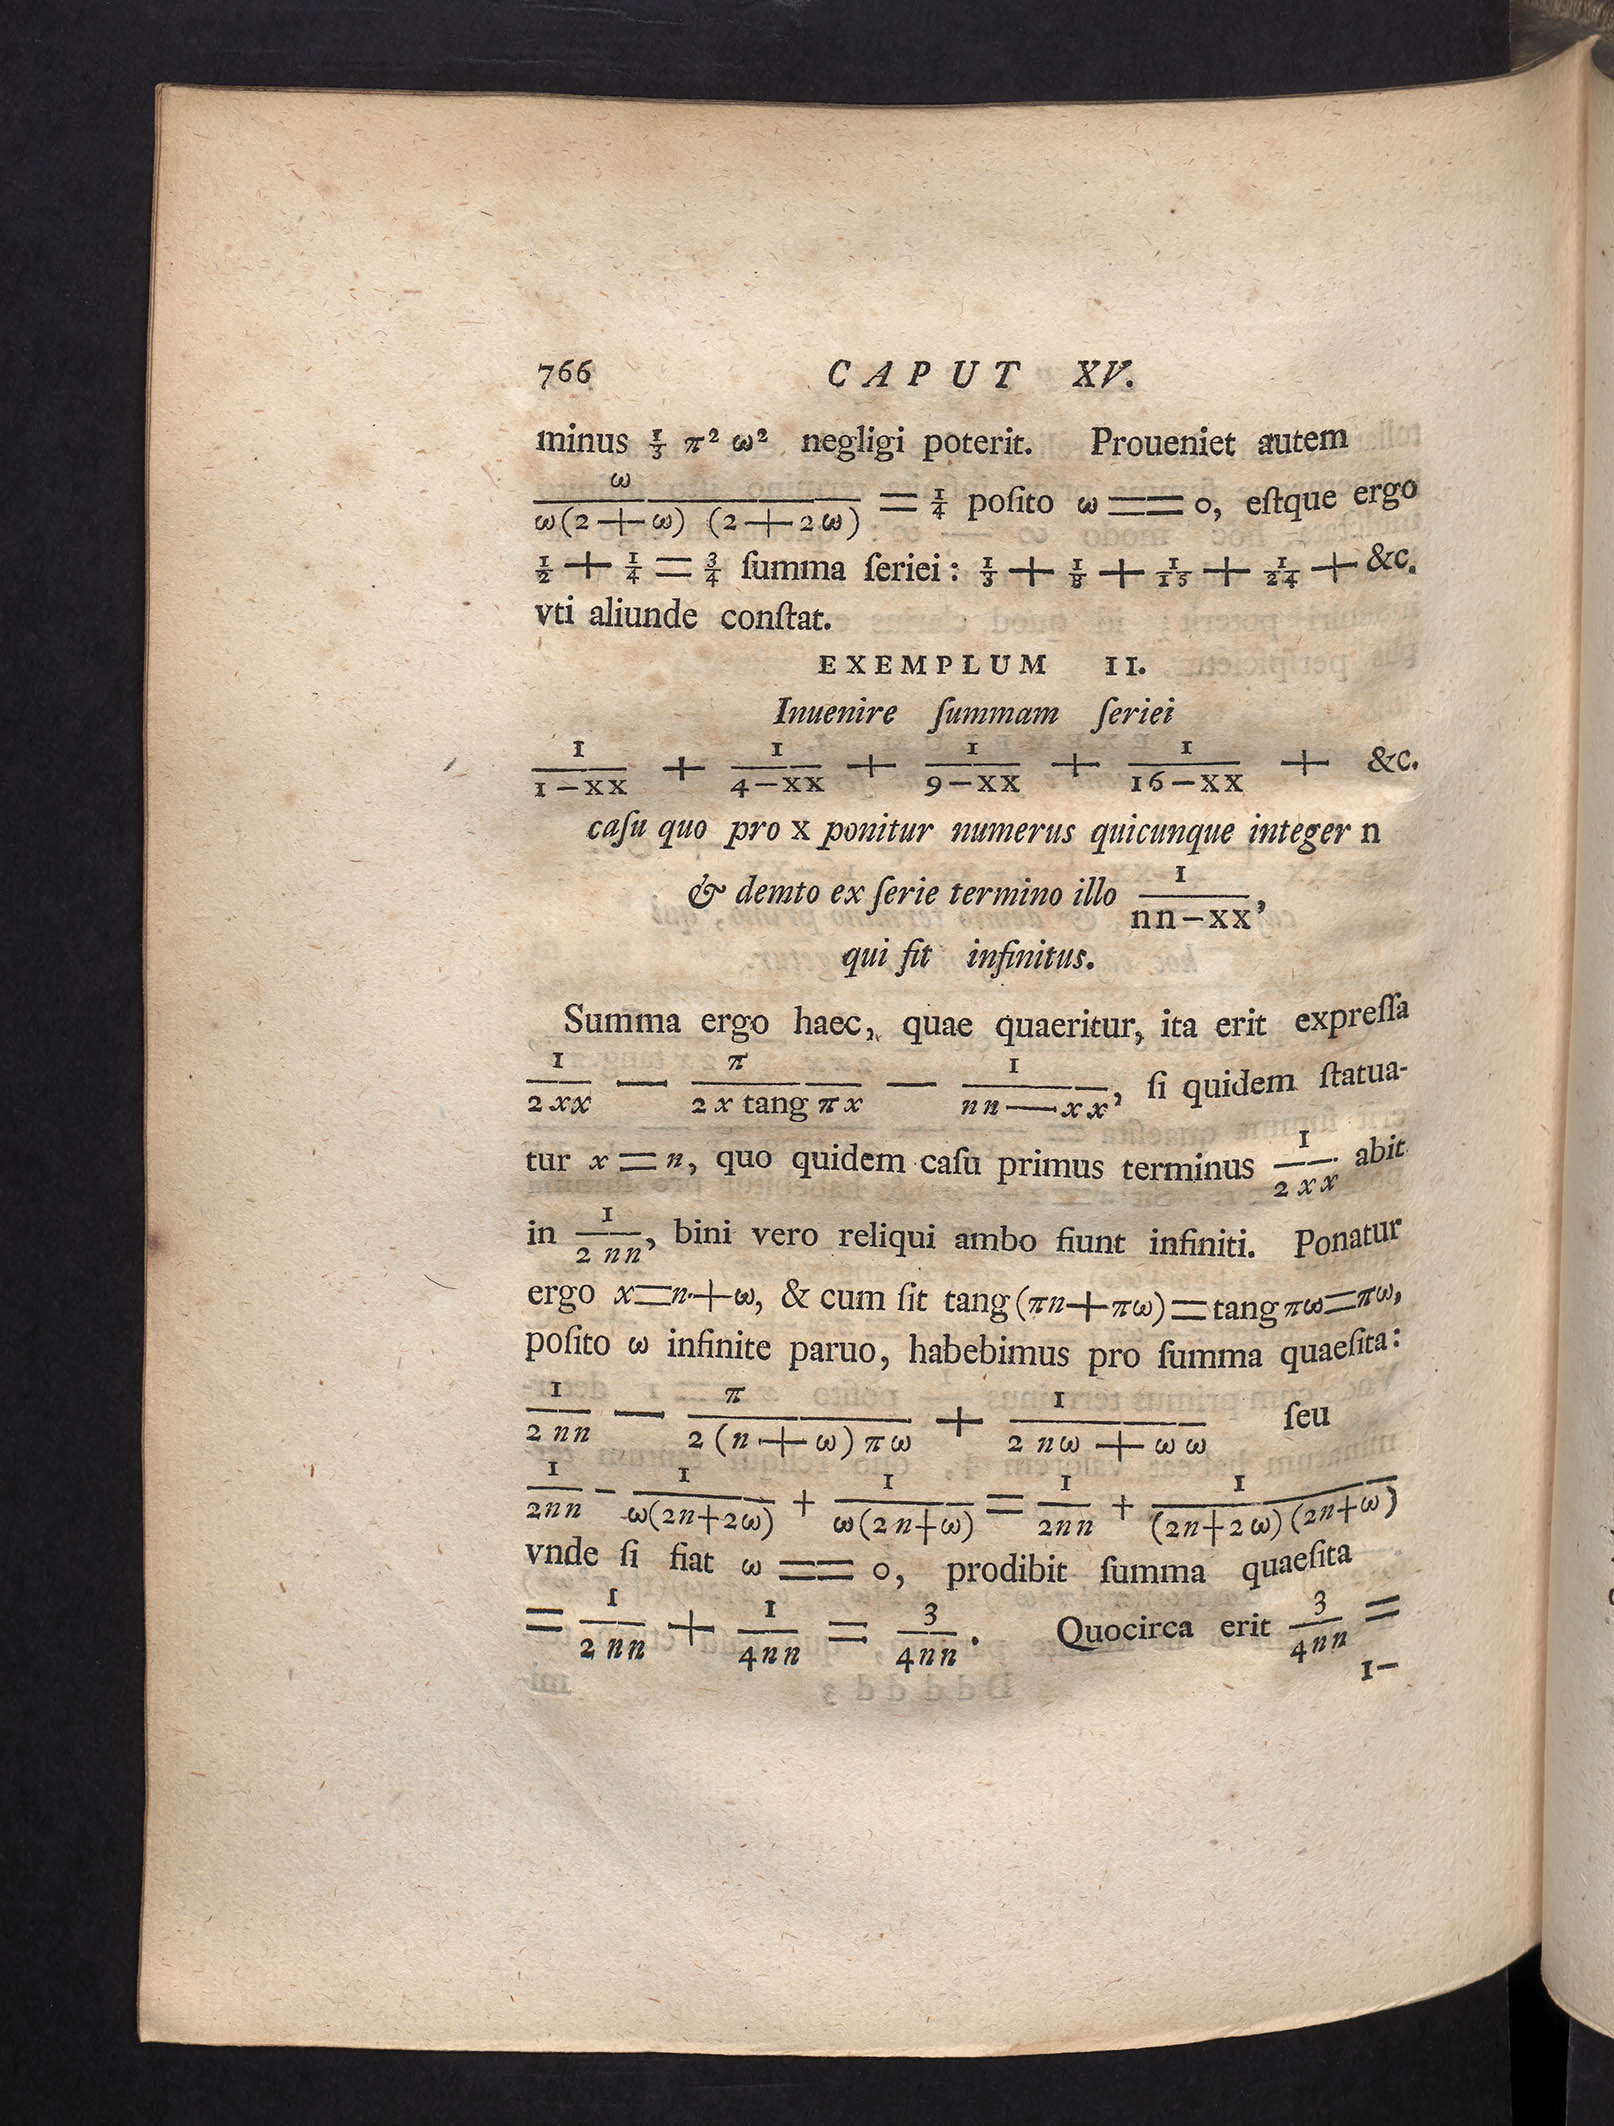 766 CAPUT XV.
minus 1/3 π² ω² negligi poterit. Proueniet autem
ω/(ω(2+ω) (2+2ω)) = 1/4 poſito ω == 0, eſtque ergo
1/2 + 1/4 = 3/4 ſumma ſeriei: 1/3 + 1/8 + 1/15 + 1/24 + &c.
vti aliunde conſtat.
EXEMPLUM II.
Inuenire ſummam ſeriei
1/(1-xx) + 1/(4-xx) + 1/(9-xx) + 1/(16-xx) + &c.
caſu quo pro x ponitur numerus quicunque integer n
& demto ex ſerie termino illo 1/(nn-xx),
qui fit infinitus.
Summa ergo haec, quae quaeritur, ita erit expreſſa
1/(2xx) — π/(2x tang πx) — 1/(nn—xx), ſi quidem ſtatua-
tur x=n, quo quidem caſu primus terminus 1/(2xx) abit
in 1/(2nn), bini vero reliqui ambo fiunt infiniti. Ponatur
ergo x=n+ω, & cum ſit tang(πn+πω)=tang πω=πω,
poſito ω infinite paruo, habebimus pro ſumma quaeſita:
1/(2nn) — π/(2(n+ω)πω) + 1/(2nω+ωω) ſeu
1/(2nn) - 1/(ω(2n+2ω)) + 1/(ω(2n+ω)) = 1/(2nn) + 1/((2n+2ω)(2n+ω))
vnde ſi fiat ω == 0, prodibit ſumma quaeſita
= 1/(2nn) + 1/(4nn) = 3/(4nn). Quocirca erit 3/(4nn) =
1-